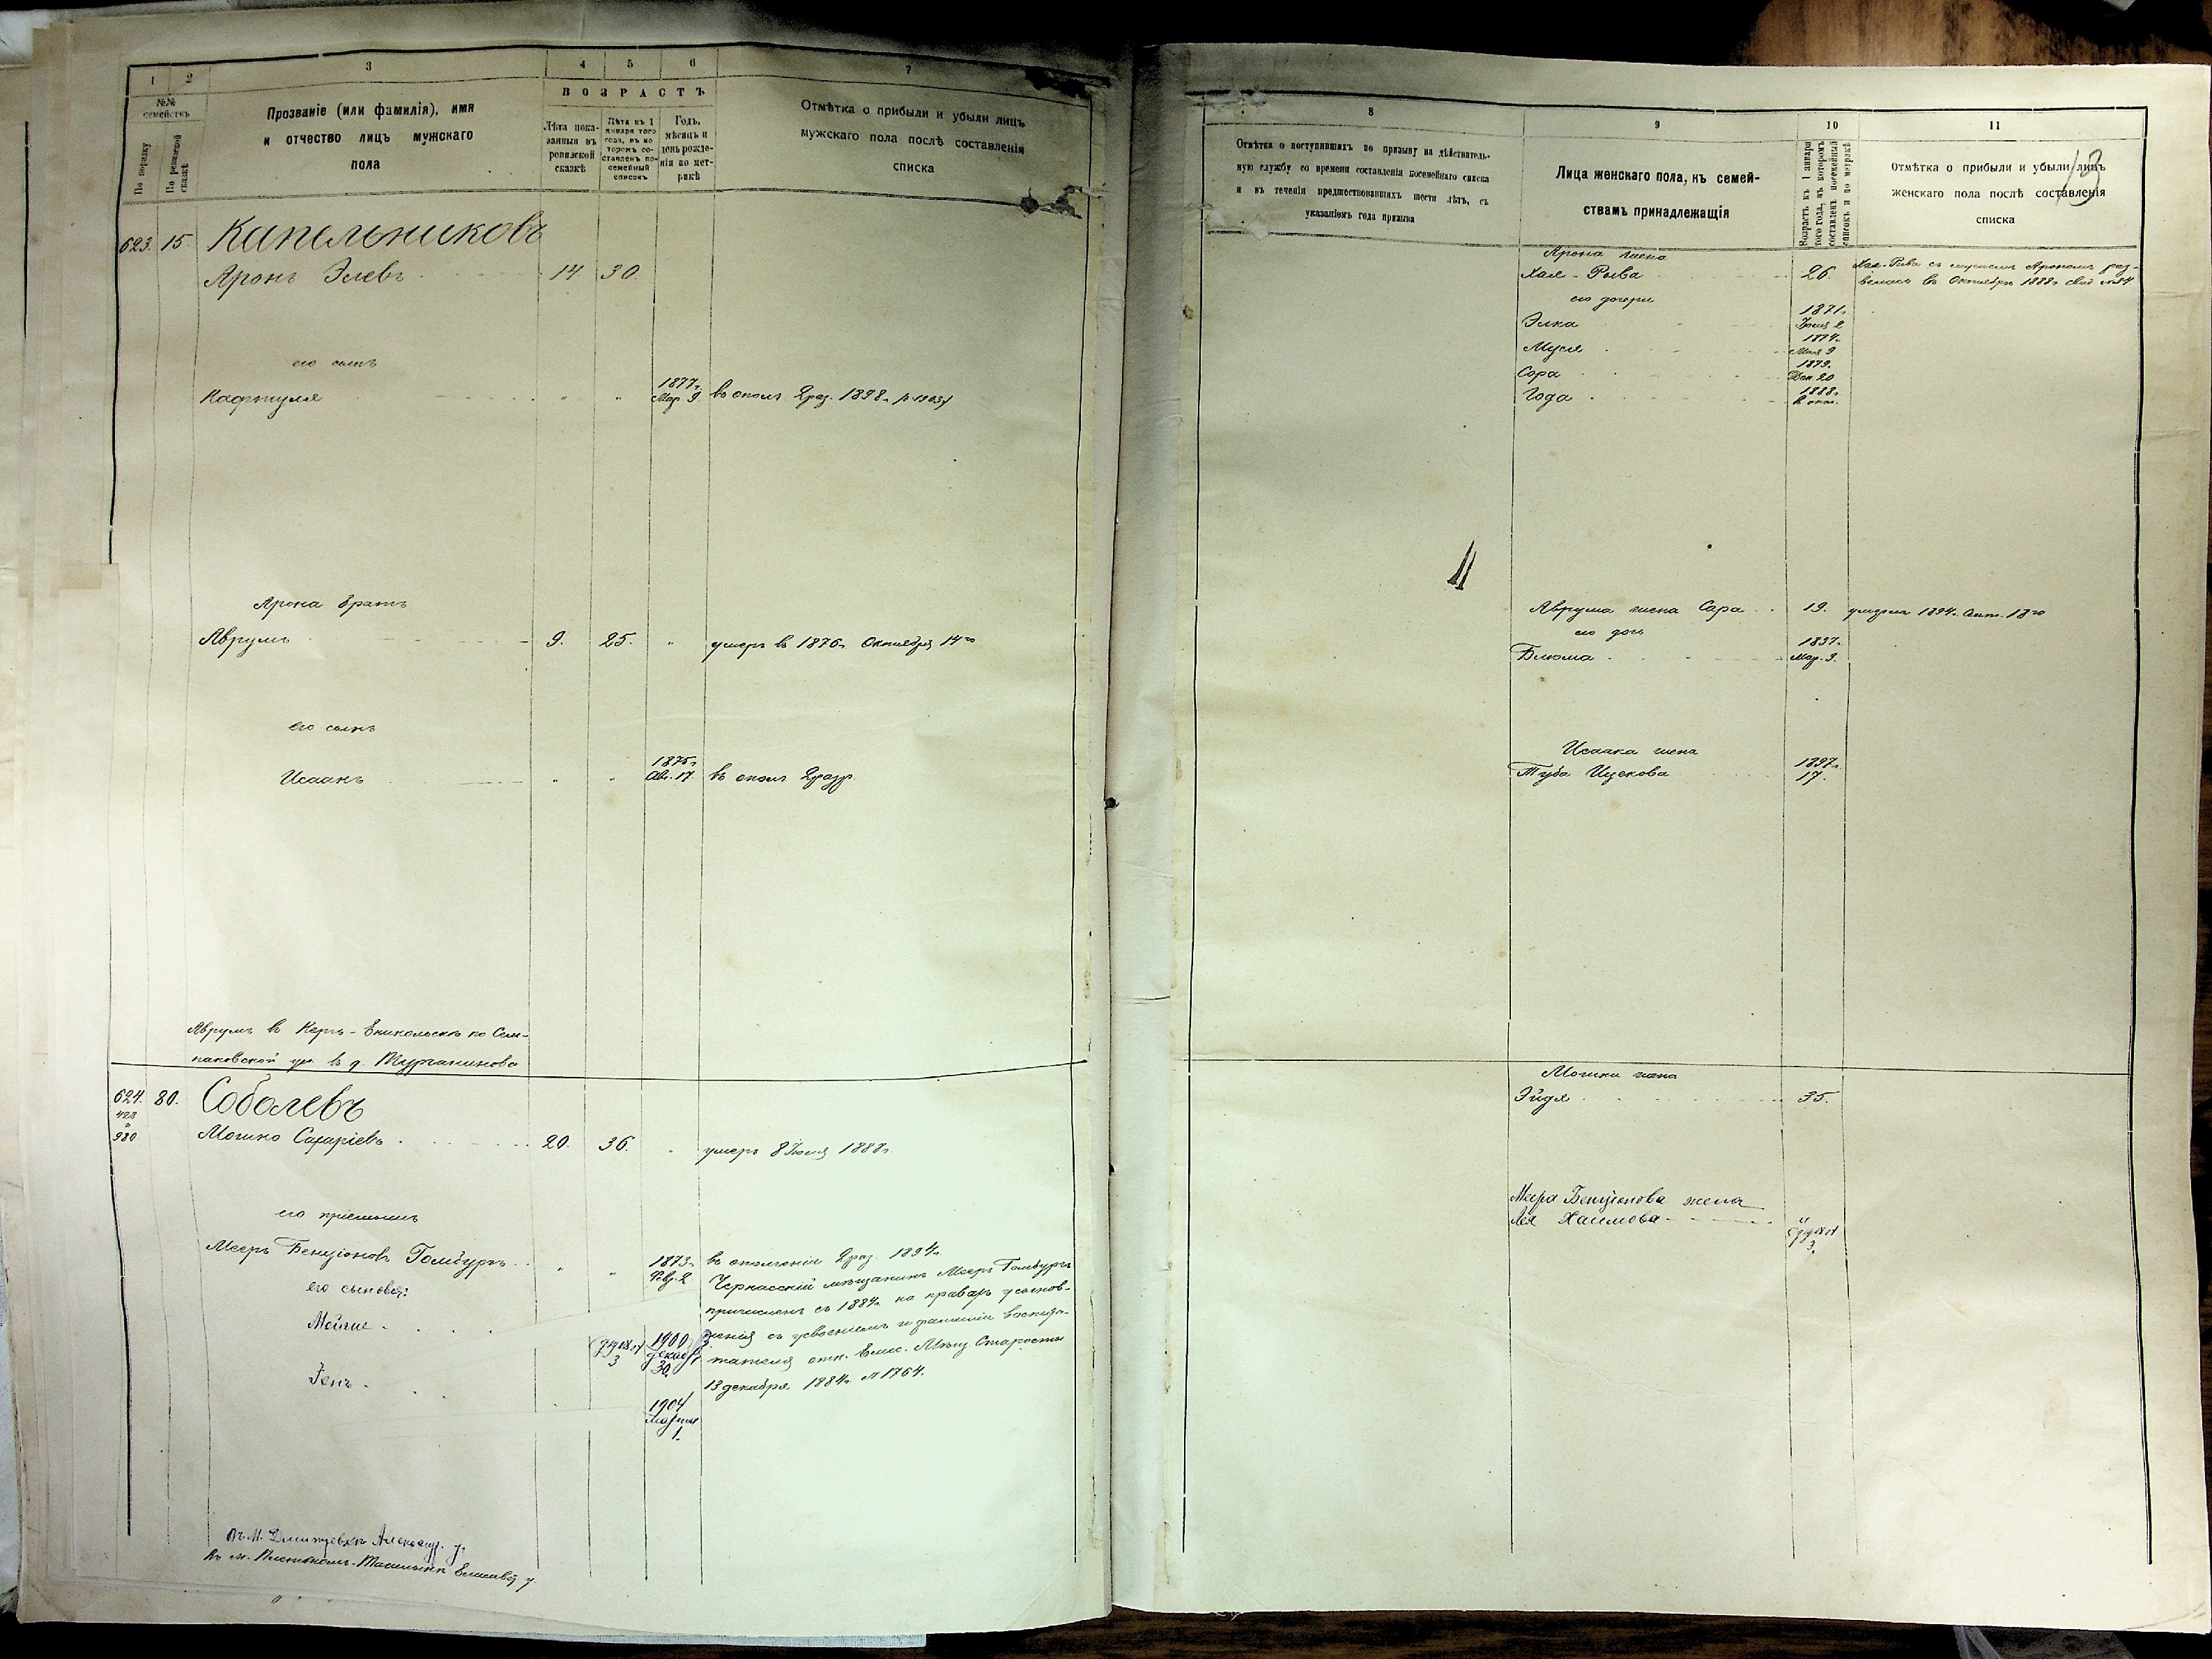 1 2 3 4 5 6 7
№№ семействъ
По порядку
По ревизской сказкѣ
Прозваніе (или фамилія), имя
и отчество лицъ мужскаго
пола
ВОЗРАСТЪ
Лѣта пока-
занныя въ
ревизской
сказкѣ
Лѣта къ 1
января того
года, въ ко-
торомъ со-
ставленъ по-
семейный
списокъ
Годъ,
мѣсяцъ и
день рожде-
нія по мет-
рикѣ
Отмѣтка о прибыли и убыли лицъ
мужскаго пола послѣ составленія
списка
623. 15. Капельниковъ
Аронъ Элевъ 14 30.
его сынъ
Нафтуля " " 1877г. Мар. 9. въ опол. 2 раз. 1898г.
Арона братъ
Аврумъ 9. 25. " умеръ въ 1876г. Октября 14го
его сынъ
Исаакъ " " 1875г. Авг. 17. въ опол. 2 разр.
Аврумъ въ Керчь-Еникольскѣ по
ул. въ д.
624. 80. Соболевъ
980
Мошко 20. 36. умеръ 8 Іюля 1888г.
его пріемышъ
Мееръ Бенціоновъ Гомбургъ " " 1873г. Фев. 2 въ ополченіи 2 раз. 1894г.
его сыновья: Черкасскій мѣщанинъ Мееръ Гомбургъ
причисленъ съ 1884г. на правахъ усынов-
ленія съ усвоеніемъ и фамиліи воспита-
Мойше 3 1900 декабр. 30. тателя отн. Елис. Мѣщ. Старосты
13 декабря 1884г. № 1764.
1904 Марта 1.
Въ м. Дмитровкѣ Александ. у.
8 9 10 11
Отмѣтка о поступившихъ по призыву на дѣйствитель-
ную службу со времени составленія посемейнаго списка
и въ теченіи предшествовавшихъ шести лѣтъ, съ
указаніемъ года призыва
Лица женскаго пола, къ семей-
ствамъ принадлежащія
Возрастъ къ 1 января
того года, въ которомъ
составленъ посемейный
списокъ и по метрикѣ
Отмѣтка о прибыли и убыли лицъ
женскаго пола послѣ составленія
списка
13
Арона жена
Хая-Рыва 26. Хая-Рива съ мужемъ Арономъ раз-
велась въ Октябрѣ 1888г.
его дочери
Элка 1871г.
Муся 1874г. Мая 9
Сора 1879. Дек. 20
Года 1888г.
Аврума жена Сара 19. умерла 1894г.
его дочь
Блюма Мар. 3.
Исаака жена
Туба Ицкова 1897г. 17.
Мошки жена
Эйдя 35.
Меера Бенціонова жена
Лея Хаимова
3.